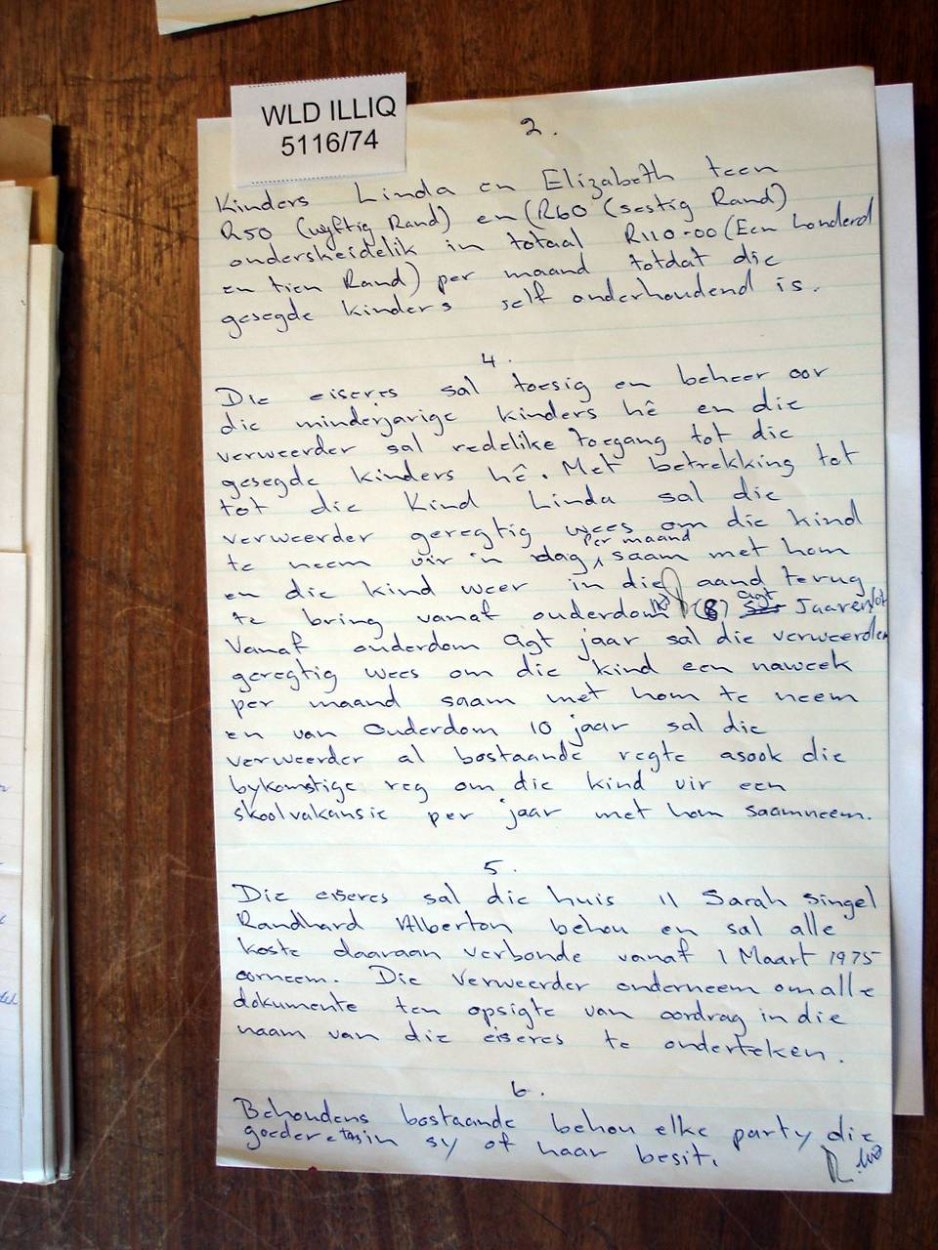 WLD ILLIQ
5116/74
2.
Kinders Linda en Elizabeth teen
R50 (vyftig Rand) en (R60 (sestig Rand)
ondersheidelik in totaal R110-00 (Een honderd
en tien Rand) per maand totdat die
gesegde kinders self onderhoudend is.
4.
Die eiseres sal toesig en beheer oor
die minderjarige kinders hê en die
verweerder sal redelike toegang tot die
gesegde kinders hê. Met betrekking tot
tot die Kind Linda sal die
verweerder geregtig wees om die kind
per maand
te neem vir 'n dag, saam met hom
en die kind weer in die aand terug
agt
te bring vanaf ouderdom (8) Jaar
Vanaf ouderdom Agt jaar sal die verweerder
geregtig wees om die kind een naweek
per maand saam met hom te neem
en van Ouderdom 10 jaar sal die
verweerder al bostaande regte asook die
bykomstige reg om die kind vir een
skoolvakansie per jaar met hom saamneem.
5.
Die eiseres sal die huis 11 Sarah Singel
Randhard Alberton behou en sal alle
koste daaraan verbonde vanaf 1 Maart 1975
oorneem. Die Verweerder onderneem om alle
dokumente ten opsigte van oordrag in die
naam van die eiseres te onderteken.
6.
Behoudens bostaande behou elke party die
goedere in sy of haar besit.